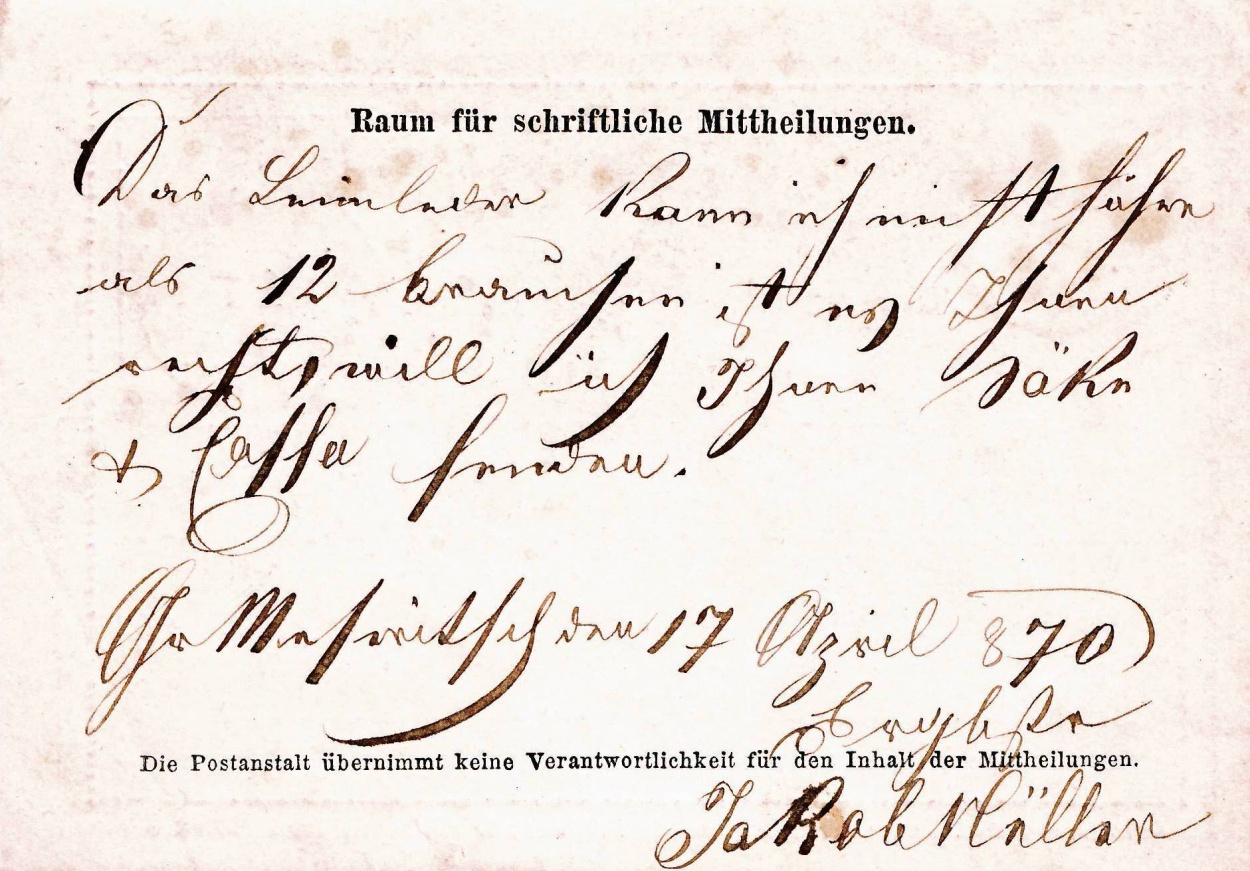 Raum für schriftliche Mittheilungen.
Das Leimleder kann ich nicht höhre
als 12 brauchen ist es Ihnen
recht, will ich Ihnen Säke
& Cassa senden.
Gr Meseritsch den 17 April 870
Ergbste
Die Postanstalt übernimmt keine Verantwortlichkeit für den Inhalt der Mittheilungen.
Jakob Müller